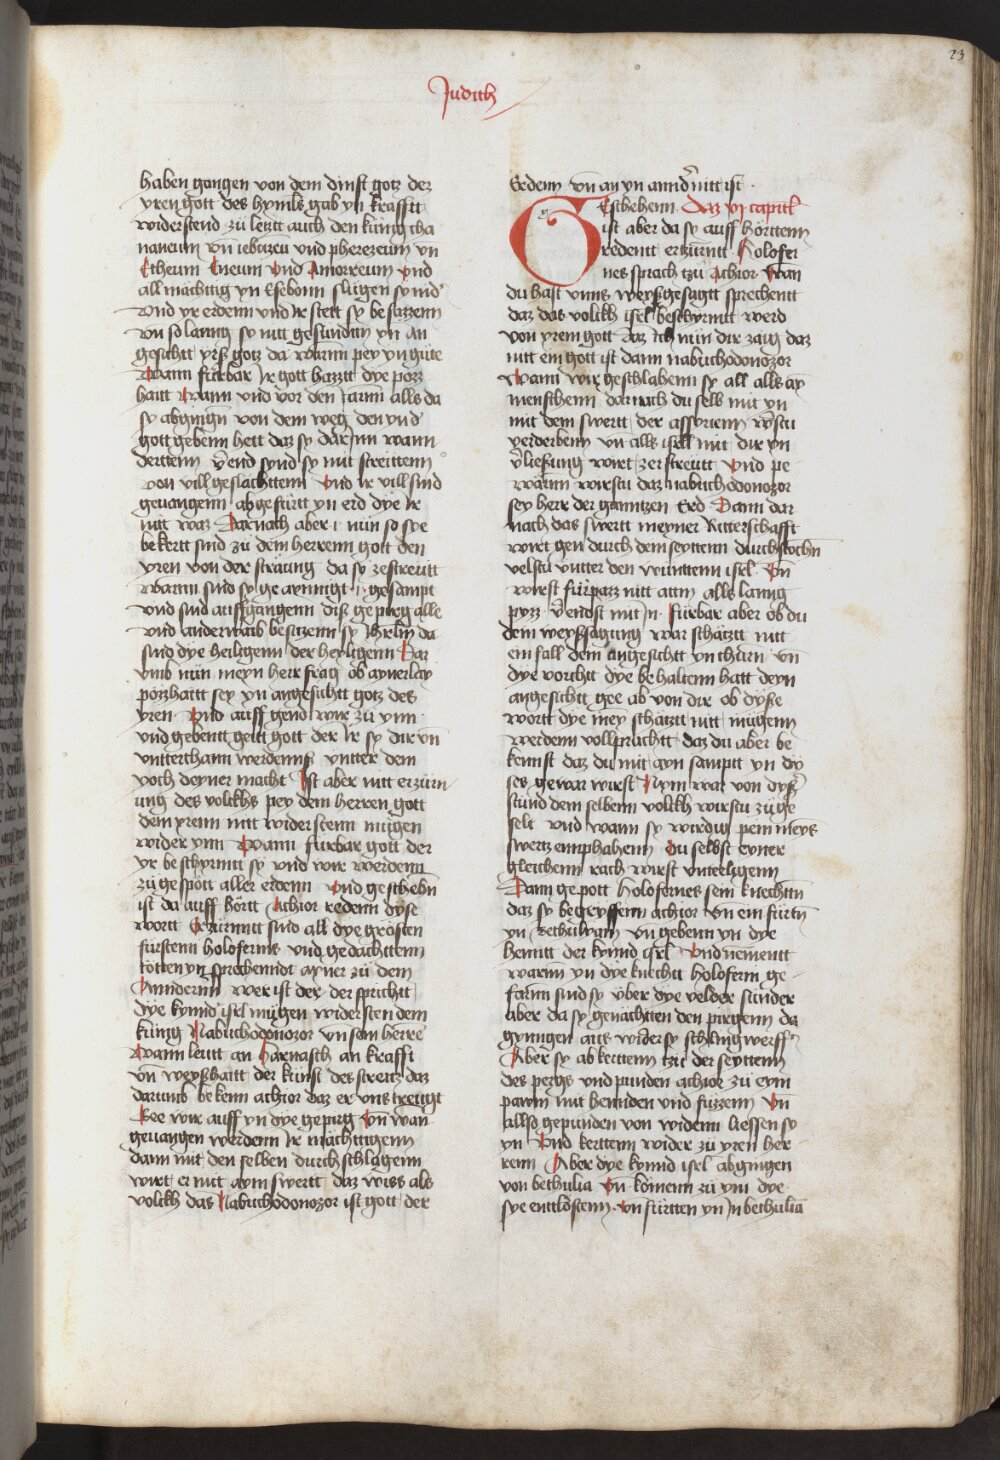 23
Judith
haben gangen von dem dinst gotz dez
yren gott des hymls gab yn krafftt
widerstend zü leytt auch den künig cha
naneum vn̄ iebüzeu und pherezeum vn̄
Etheum Eneum Vnd Amorreum Vnd
all mächtig yn Esebonn slügen sy nid
Vnd yr erdenn Vnd Ir stett sy besazzenn
Vn̄ so lanng sy nitt gesundttn yn an
gesichtt yrß gotz da warnn pey yn güte
Wann fürbar Ir gott hazztt dye pozz
haitt Wann vnd vor den Iarnn alls da
sy abgingn von dem weg den yn d
gott gebenn hett daz sy dar Inn wann
derttenn v̄end synd sy mit streittenn
von vill geslächttenn Vnd Ir vill sind
geuangenn abgefürtt yn erd dye Ir
nitt waz Darnach aber i nün so sye
bekertt sind zü dem herrenn gott den
yren von der straung da sy zestreütt
warnn sind sy ge aynnigt i gesampt
vnd sind auffgangenn diß gepirg alle
vnd anderwaib besitzenn sy Ihrlm̄ da
sind dye heiligenn der heyligenn Dar
vmb nün meyn herr frag ob aynerlay
pözzhaitt sey yn angesichtt gotz des
yren Vnd auff gend wir zü ynn
vnd gebentt geitt gott der Ir sy dir vn̄
vntterthann werdennß vntter dem
yoch deyner macht Ist aber nitt erzürn
ung des volckhs pey dem herren gott
dem yrenn nitt widerstenn mügen
wider ynn Wann fürbar gott der
yr beschyrmtt sy vnd wir werdenn
zü gespött aller erdenn Vnd geschehn̄
ist da auff hörtt Achior redenn dyse
wortt Erzürnntt sind all dye grösten
fürstenn holoferniß vnd gedachttenn
tötten yn sprechenndt ayner zü dem
Annderm̄ wer ist der der sprichtt
dye kynnd isrl mügen widersten dem
künig Nabuchodonozor vn̄ sein herre
Wann leütt an Harnasch an krafft
vn̄ weyßhaitt der künst des streitz daz
darumb bekenn achior daz er vns treügt
See wir auff yn dye gepirg Vn̄ wan
geuangen werdenn Ir mächttigenn
dann mit den selben durch schlagenn
wirt er mit aym swertt daz wiss als
volckh das Nabuchodonozor ist gott der
Erdenn vn̄ an yn annd̄r nitt ist
Eschehenn Daz vi capitl
ist aber da sy auff hörttenn
redentt erzürntt Holofer
nes sprach tzü Achior Wan
du hast vnns weyßgesagtt sprechentt
daz das volckh isrl beschyrmtt werd
von yrem gott Daz Ich nün dir zaig daz
nitt ein gott ist dann nabuchodonozor
Wann wir geschlahenn sy all alls ayn
menschenn darnach du selb mit yn
mit dem swertt der assyrienn w̄stu
verderbenn vn̄ alls isrll mit dir yn
v̄ließung wirt zerstreütt Vnd pe
wärnn wirstu daz nabuchodonozor
sey herr der ganntzen Erd Dann dar
nach das swertt meyner Ritterschafft
wirt gen durch dem seyttenn durchstochn̄
velstu vntter den wünttenn isrl Vn̄
wirst fürpazz nitt attm̄ alls lanng
pyzz v̄endst mit In fürbar aber ob du
dem weyßsagung war schätztt nitt
ein fall dem angesichtt yn thürn Vn̄
dye vorchtt dye behaltenn hatt deyn
angesichtt gee ab von dir ob dyße
wortt dye mey schätztt nitt mügenn
werdenn vollprächtt daz du aber be
kennst daz du mit ayn samptt yn dy
ses gewar wirst Nym war von dyßr̄
stünd dem selbenn volckh wirstu züge
selt vnd wann sy wirdig pein meyß
swertz emmphahenn Du selbst eyner
gleichenn rach wirst vntterligenn
Dann gepott holofernes sein knechttn̄
daz sy begreyffenn achior Vn̄ ein fürtn̄
yn Bethuliam Vn̄ gebenn yn dye
henntt der kynnd isrl Vnd nementt
warnn yn dye knechtt holofern̄ ge
farnn sind sy vber dye velder sünder
aber da sy genachtten den pirgenn da
gynngen aus wider sy schlingwerffr̄
Aber sy abkerttenn tzü der seyttenn
des pergs vnd punden achior zü eym
pawm mit hennden vnd füzzenn Vn̄
allso gepunden von widenn liessen sy
yn Vnd kerttenn wider zü yren her
renn Aber dye kynnd isrl abgingen
von bethulia Vn̄ komenn zü ym dye
sye enttlöstenn Vn̄ fürtten yn In bethuliā